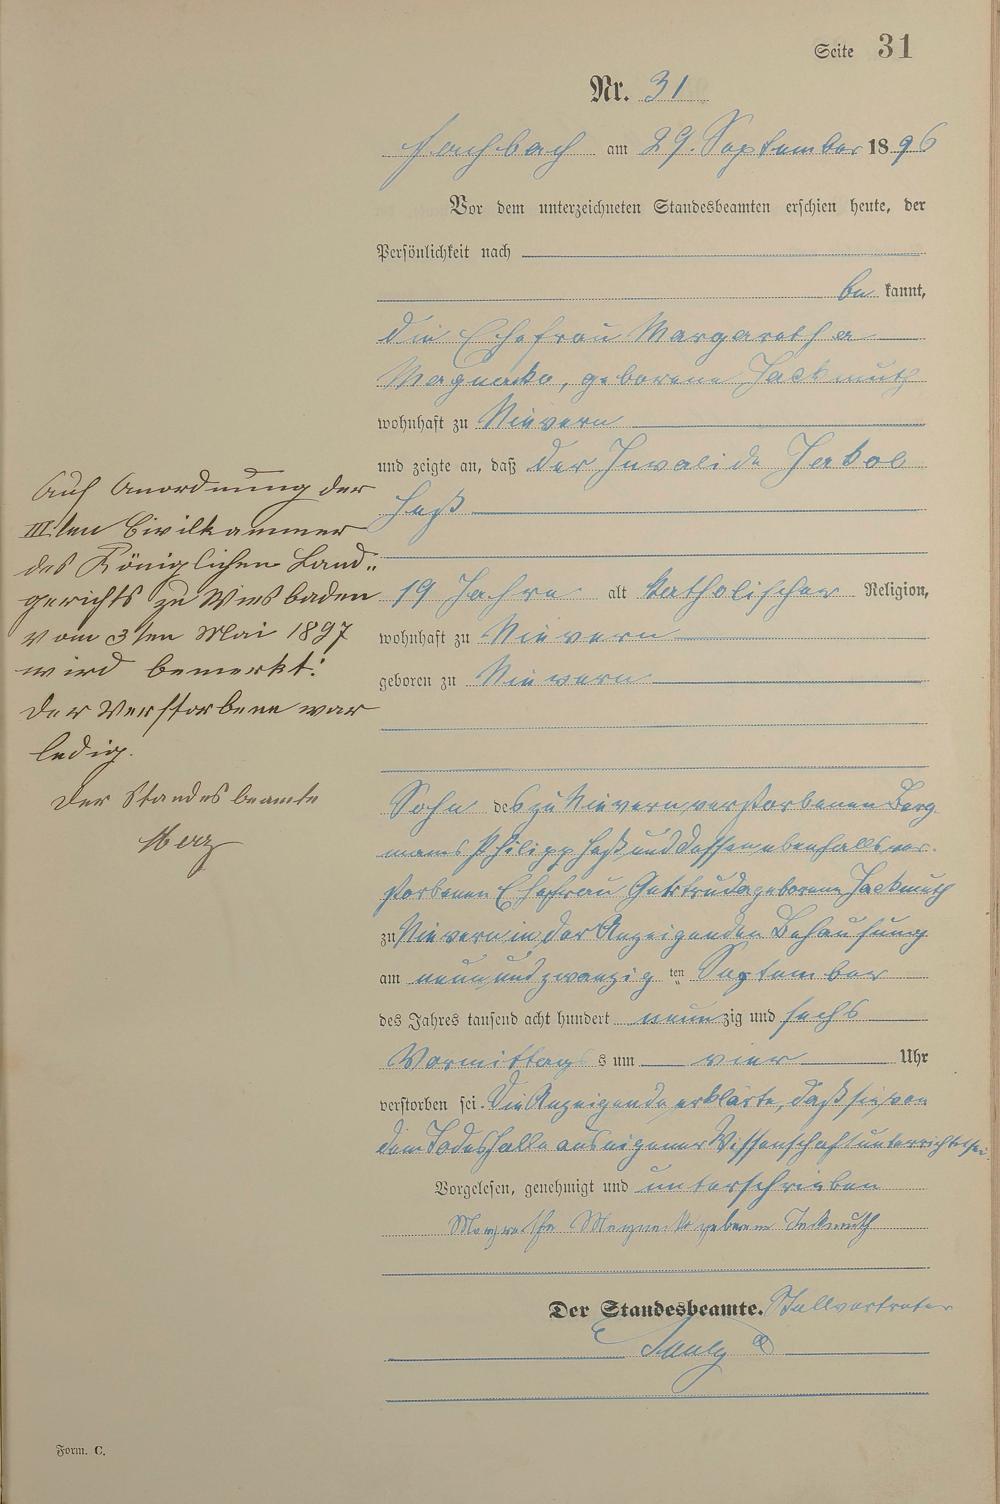 Seite 31
Nr. 31
Fachbach am 29. September 1896
Vor dem unterzeichneten Standesbeamten erschien heute, der
Persönlichkeit nach
be kannt,
die Ehefrau Margaretha
geborene Jackmuth
wohnhaft zu Nievern
und zeigte an, daß der Invalide Jakob
Heß
19 Jahre alt katholischer Religion,
wohnhaft zu Nievern
geboren zu Nievern
Sohn des zu Nievern verstorbenen Berg
manns Philipp Heß und dessen ebenfalls ver-
storbenen Ehefrau geborene Jackmuth
zu Nievern in der Anzeigenden Behausung
am neunundzwanzig ten September
des Jahres tausend acht hundert neunzig und sechs
Vormittags um vier Uhr
verstorben sei. Die Anzeigende erklärte, daß sie von
dem Todesfalle aus eigener Wissenschaft unterrichtet sei.
Vorgelesen, genehmigt und unterschrieben
geborene Jackmuth
Der Standesbeamte. Stellvertreter
Auf Anordnung der
III.ten Civilkammer
des Königlichen Land-
gerichts zu Wiesbaden
vom 3ten Mai 1897
wird bemerkt:
der Verstorbene war
ledig.
Der Standesbeamte
Merz
Form. C.